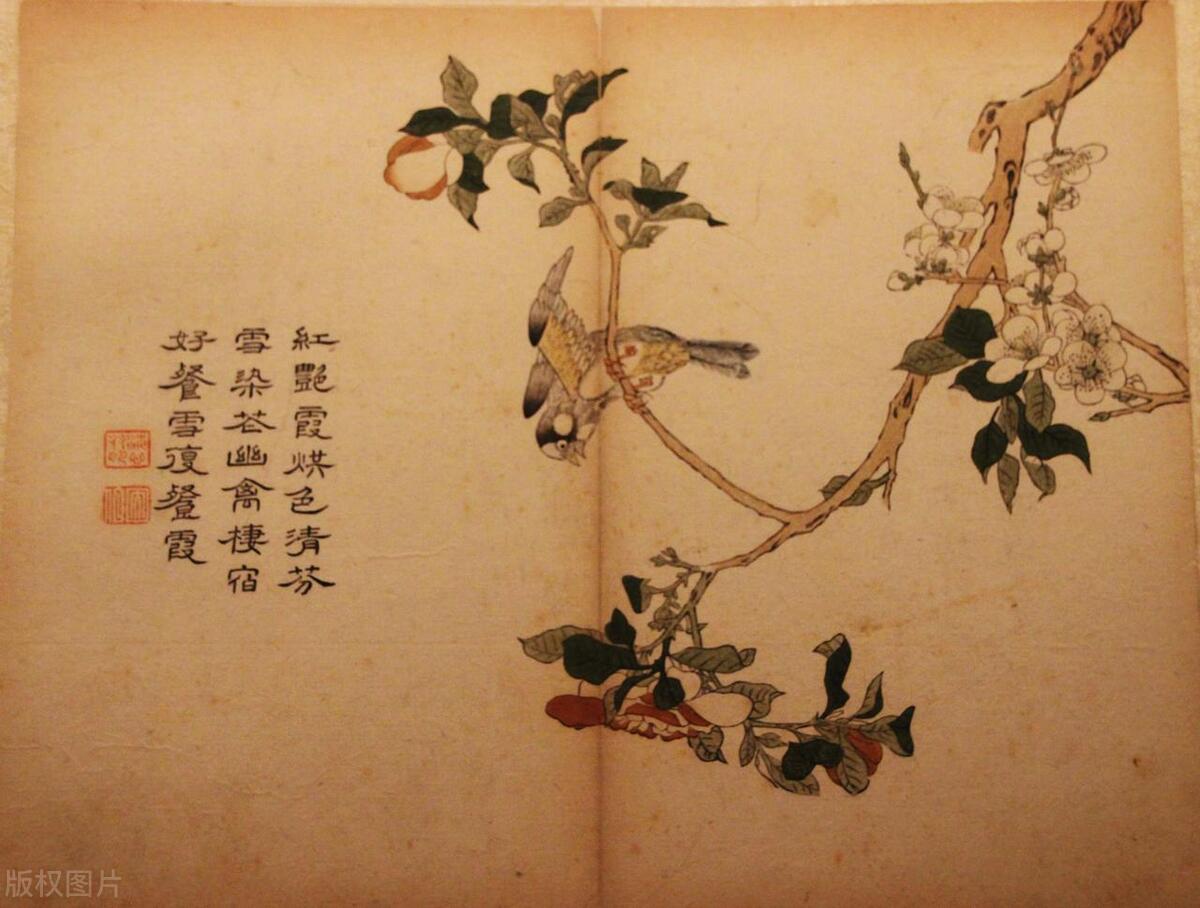 紅艷霞烘色清芬
雪染花幽禽棲宿
好餐雪復餐霞
版权图片